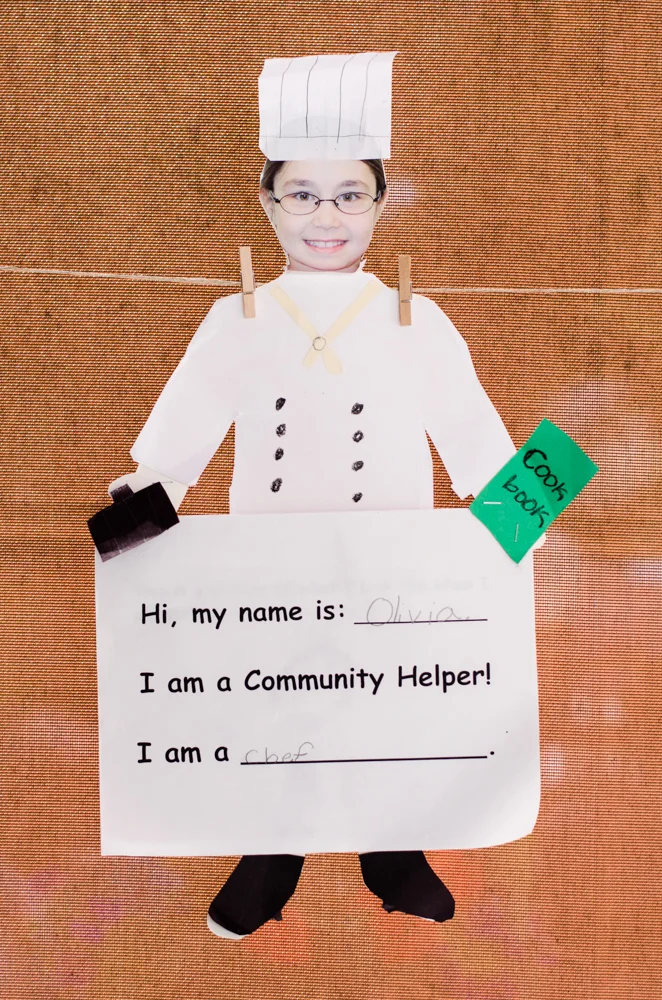 Cook
book
Hi, my name is: Olivia.
I am a Community Helper!
I am a chef.